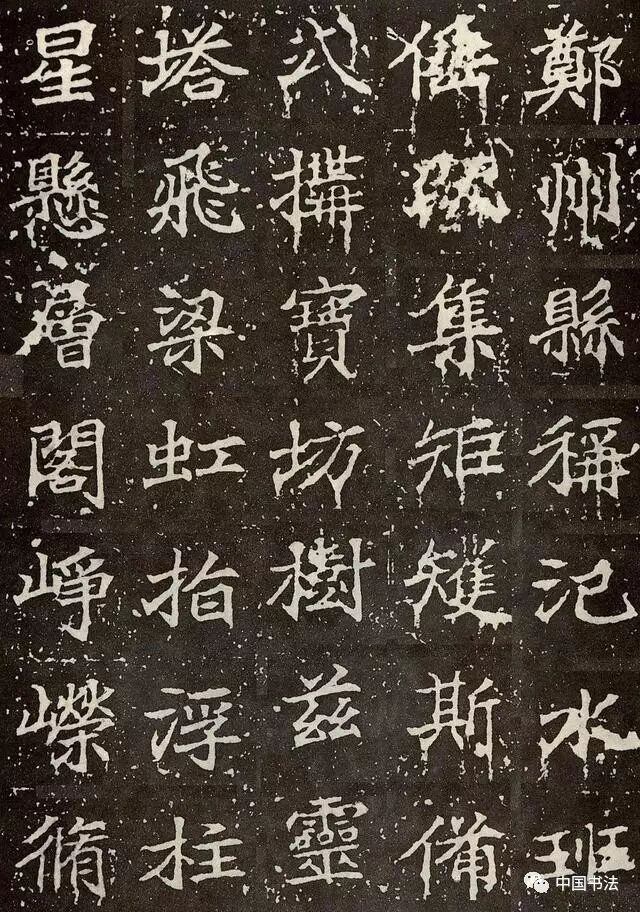 鄭州縣稱汜水班
倕既集矩矱斯備
式搆寶坊樹兹靈
塔飛梁虹指浮柱
星懸層閣崢嶸脩
中国书法